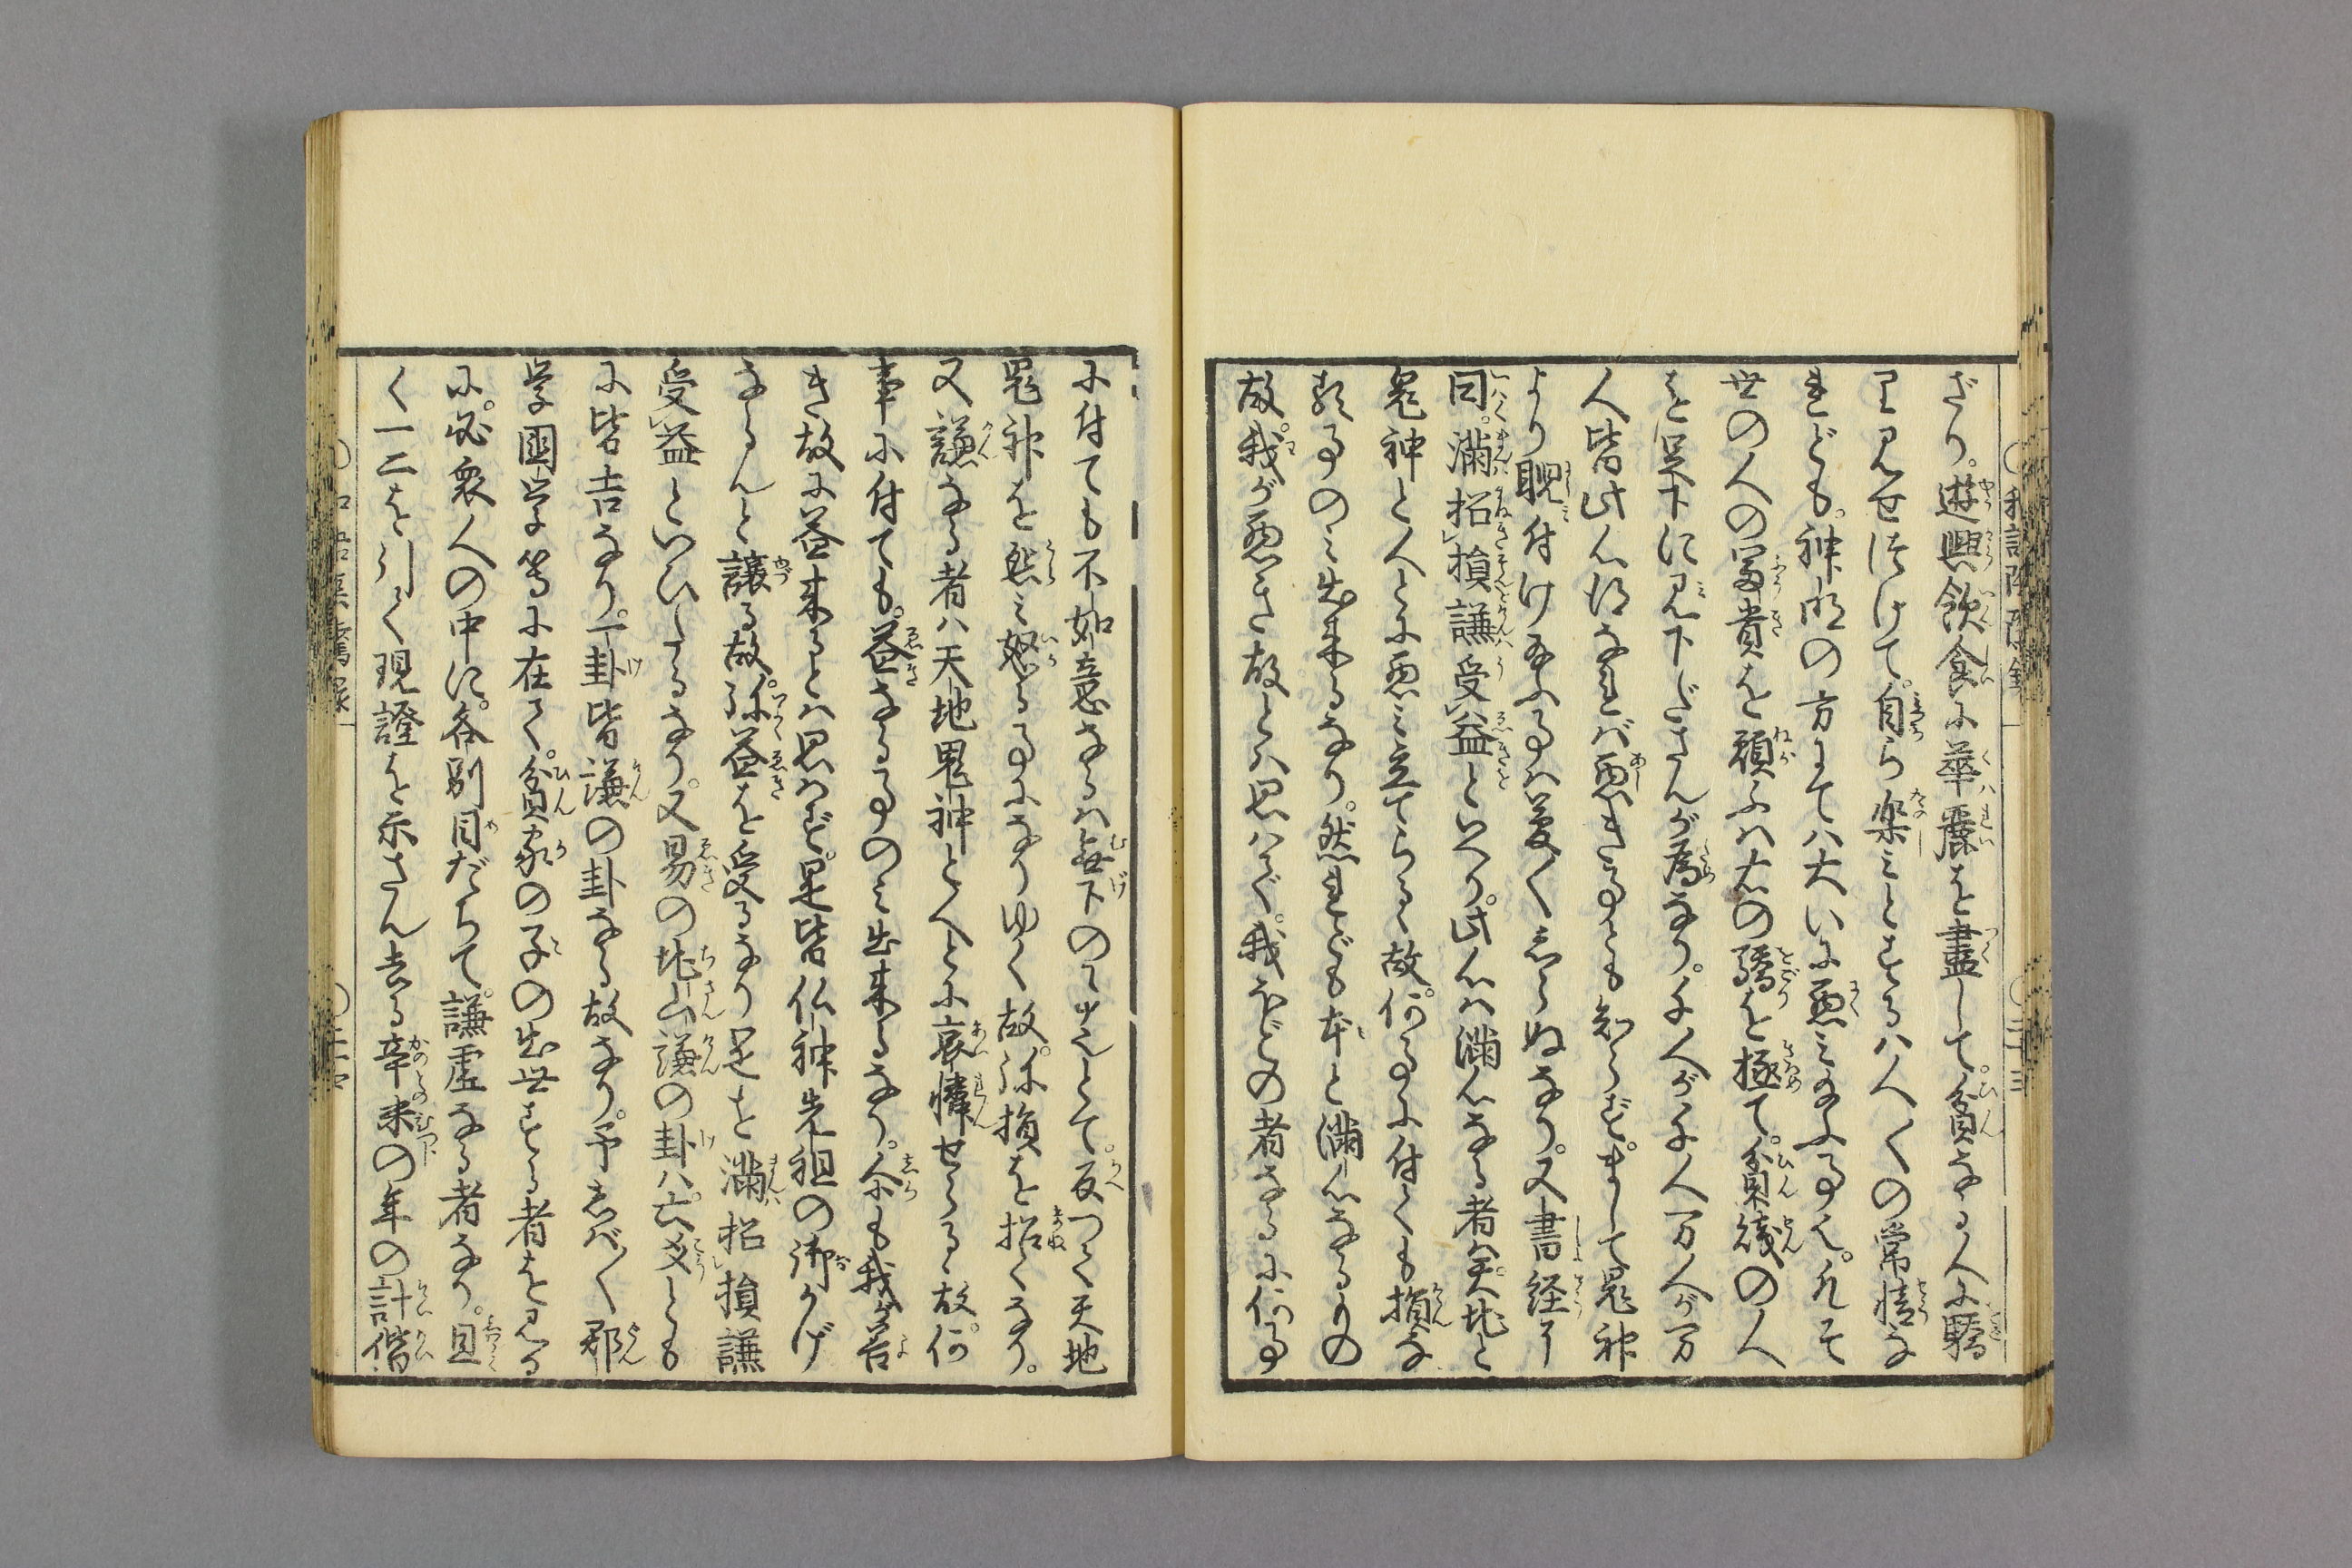 ざり。遊興飲食に華麗を盡して。貧なる人に驕
り見せ付けて。自ら楽みとするハ人〻の常情な
れども。神明の方にてハ大いに悪み給ふ事也。凡そ
世の人の冨貴を願ふハ右の驕を極て。貧賤の人
を足下に見下ださんが為なり。千人が千人万人が万
人皆此心得なれバ悪き事とも知らず。まして鬼神
より睨付け給ふ事ハ夢〻志らぬなり。又書経に
曰。満招損謙受益といへり。此心ハ満心なる者ハ天地と
鬼神と人とに悪み立てらるゝ故。何事に付ても損な
る事のミ出来るなり。然れども本と満心なるもの
故。我が悪き故とハ思ハず。我ほどの者なるに何事
に付ても不如意なるハ無下の事也とて。反つて天地
鬼神を怨ミ怒る事になりゆく故。弥損を招くなり。
又謙なる者ハ天地鬼神と人とに哀憐せらるゝ故。何
事に付ても。益なる事のミ出来るなり。尒も我が善
き故に益来るとハ思ハず。是皆仏神先祖の御かげ
ならんと譲る故。弥益を受るなり是を満招損謙
受益といひしるなり。又易の地山謙の卦ハ。六爻とも
に皆吉なり。一卦皆謙の卦なる故なり。予志バ〻郡
学国学等に在て。貧家の子の出世する者を見る
に。必衆人の中に。各別目だちて。謙虚なる者なり。且
く一二を引て現證を示さん去る辛未の年の計偕